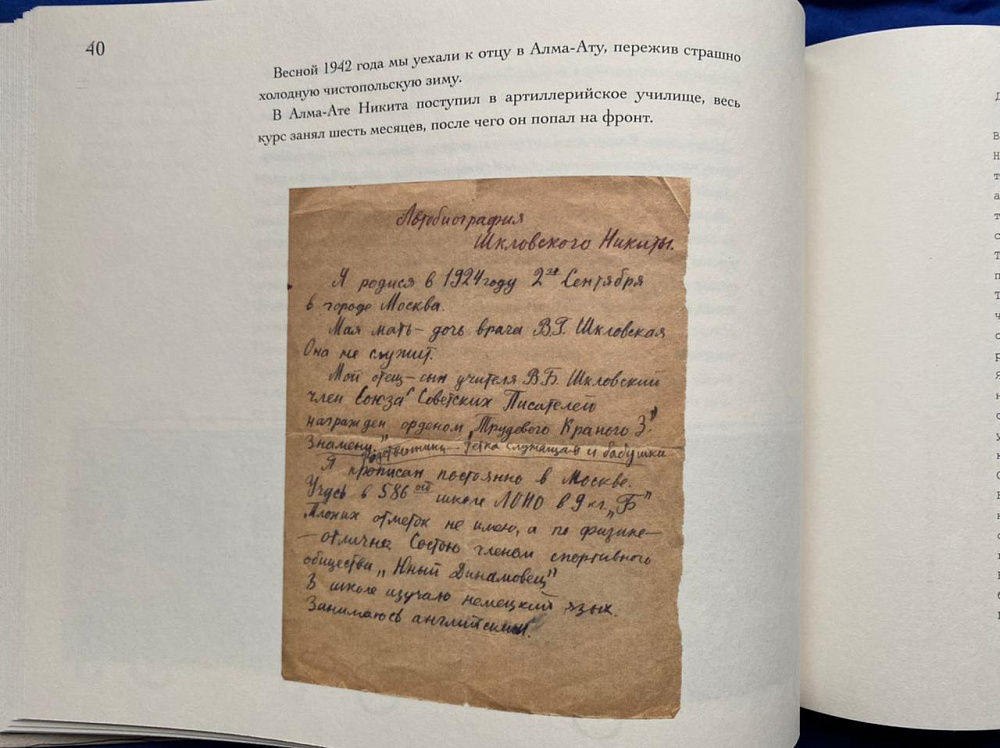 40
Весной 1942 года мы уехали к отцу в Алма-Ату, пережив страшно
холодную чистопольскую зиму.
В Алма-Ате Никита поступил в артиллерийское училище, весь
курс занял шесть месяцев, после чего он попал на фронт.
Автобиография
Шкловского Никиты.
Я родися в 1924 году 2го Сентября
в городе Москва.
Мая мать – дочь врача В.Г. Шкловская
Она не служит.
Мой отец – сын учителя В.Б. Шкловский
член Союза Советских Писателей
награжден орденом „Трудового Краного З."
Знамени" родственники – тетка служащая и бабушки
Я прописан постоянно в Москве.
Учусь в 586ой школе ЛОНО в 9 кл. „Б"
Плохих отметок не имею, а по физике –
– отлично. Состою членом спортивного
общества „Юный Динамовец"
В школе изучаю немецкий язык.
Занимаюсь английским.